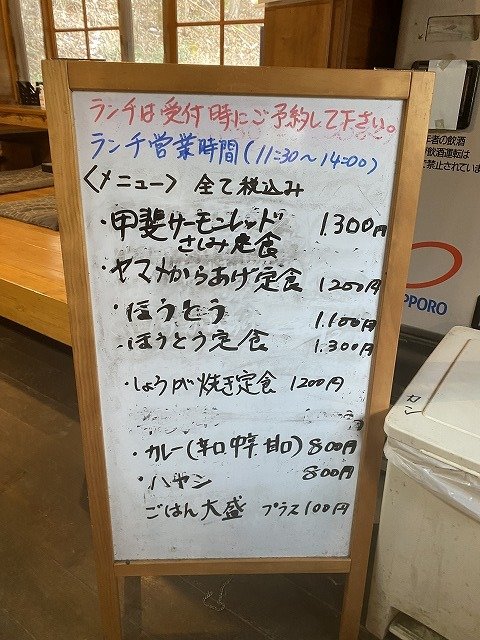 ランチは受付時にご予約して下さい。
ランチ営業時間(11:30〜14:00)
〈メニュー〉 全て税込み
・甲斐サーモンレッド
さしみ定食 1.300円
・ヤマメからあげ定食 1200円
・ほうとう 1.100円
・ほうとう定食 1.300円
・しょうが焼き定食 1200円
・カレー(辛口 中辛 甘口) 800円
・ハヤシ 800円
ごはん大盛 プラス100円
年者の飲酒
飲酒運転は
禁止されていま
PPORO
カン